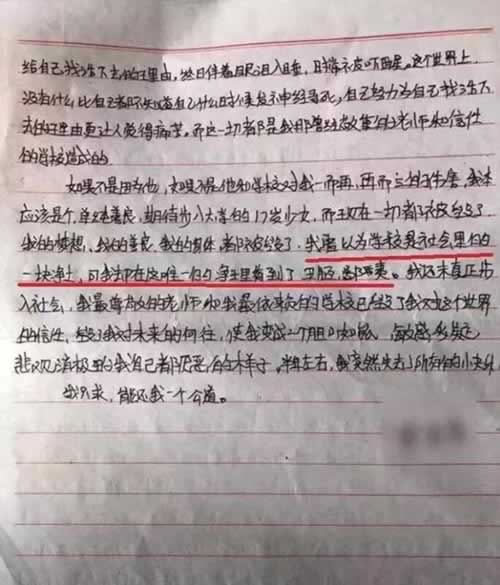 给自己找活下去的理由，終日伴着眼泪入睡，时常被噩梦吓醒。这个世界上
没有什么比自己都不知道自己什么时候会发神经寻死，自己努力为自己找活下
去的理由更让人觉得痛苦。而这一切都是我那曾经敬重的老师和信任
的学校造成的
如果不是因为他，如果不是他和学校对我一而再，再而三的伤害，我本
应该是个单纯善良，期待步入大学的17岁少女，而现在一切都被毁了
我的梦想，我的善良，我的身体，都被毁了，我原以为学校是社会里的
一块净土，可我却在这唯一的净土里看到了丑陋，邪恶。我还未真正步
入社会，我最尊敬的老师和我最依赖的学校已经毁了我对这个世界
的信任，毁了我对未来的向往，使我变成一个胆小如鼠，敏感多疑
悲观消极的我自己都厌恶的样子。半年左右，我突然失去了所有的
我只求，能还我一个公道。